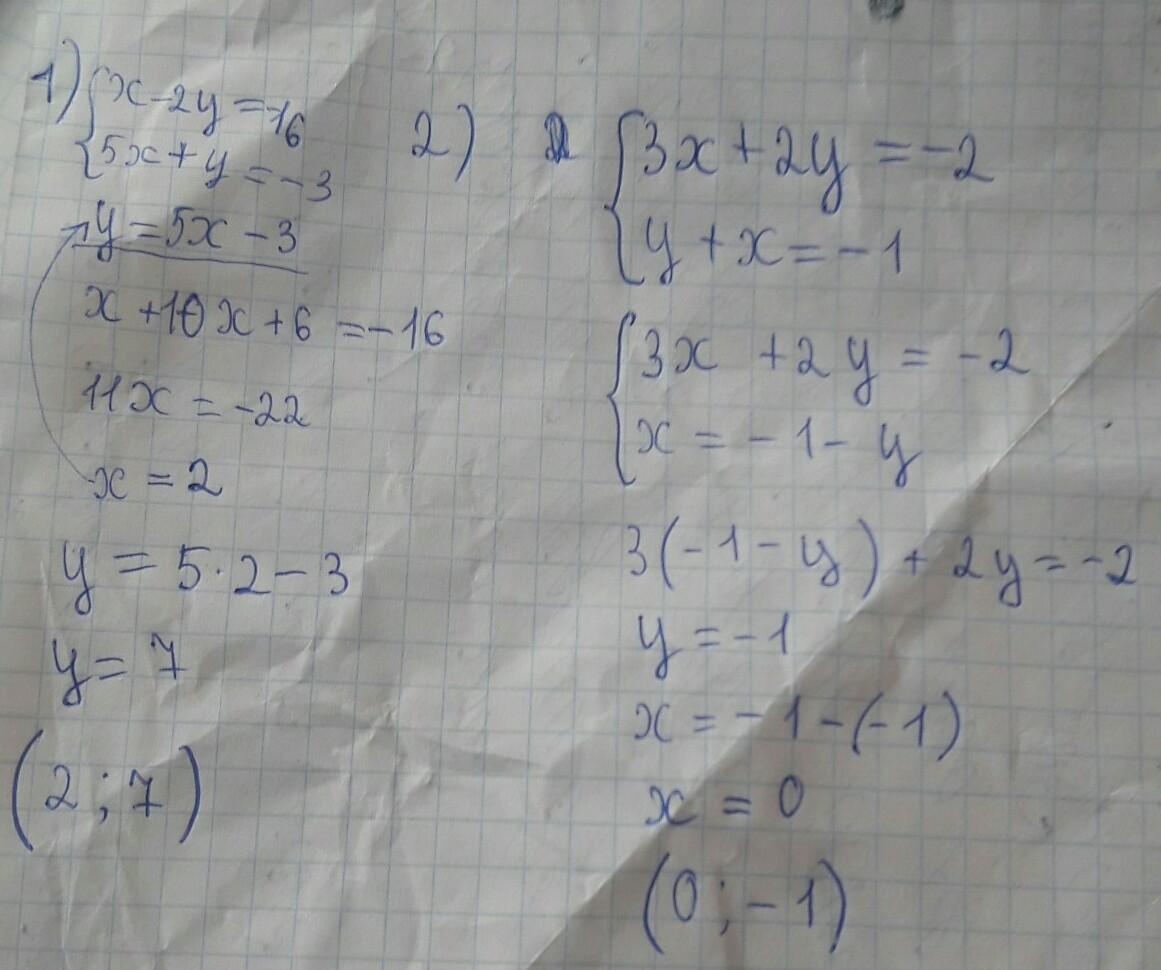 1) { x - 2y = -16
5x + y = -3
y = 5x - 3
x + 10x + 6 = -16
11x = -22
x = 2
y = 5 · 2 - 3
y = 7
(2 ; 7)
2) { 3x + 2y = -2
y + x = -1
{ 3x + 2y = -2
x = -1 - y
3(-1 - y) + 2y = -2
y = -1
x = -1 - (-1)
x = 0
(0 ; -1)